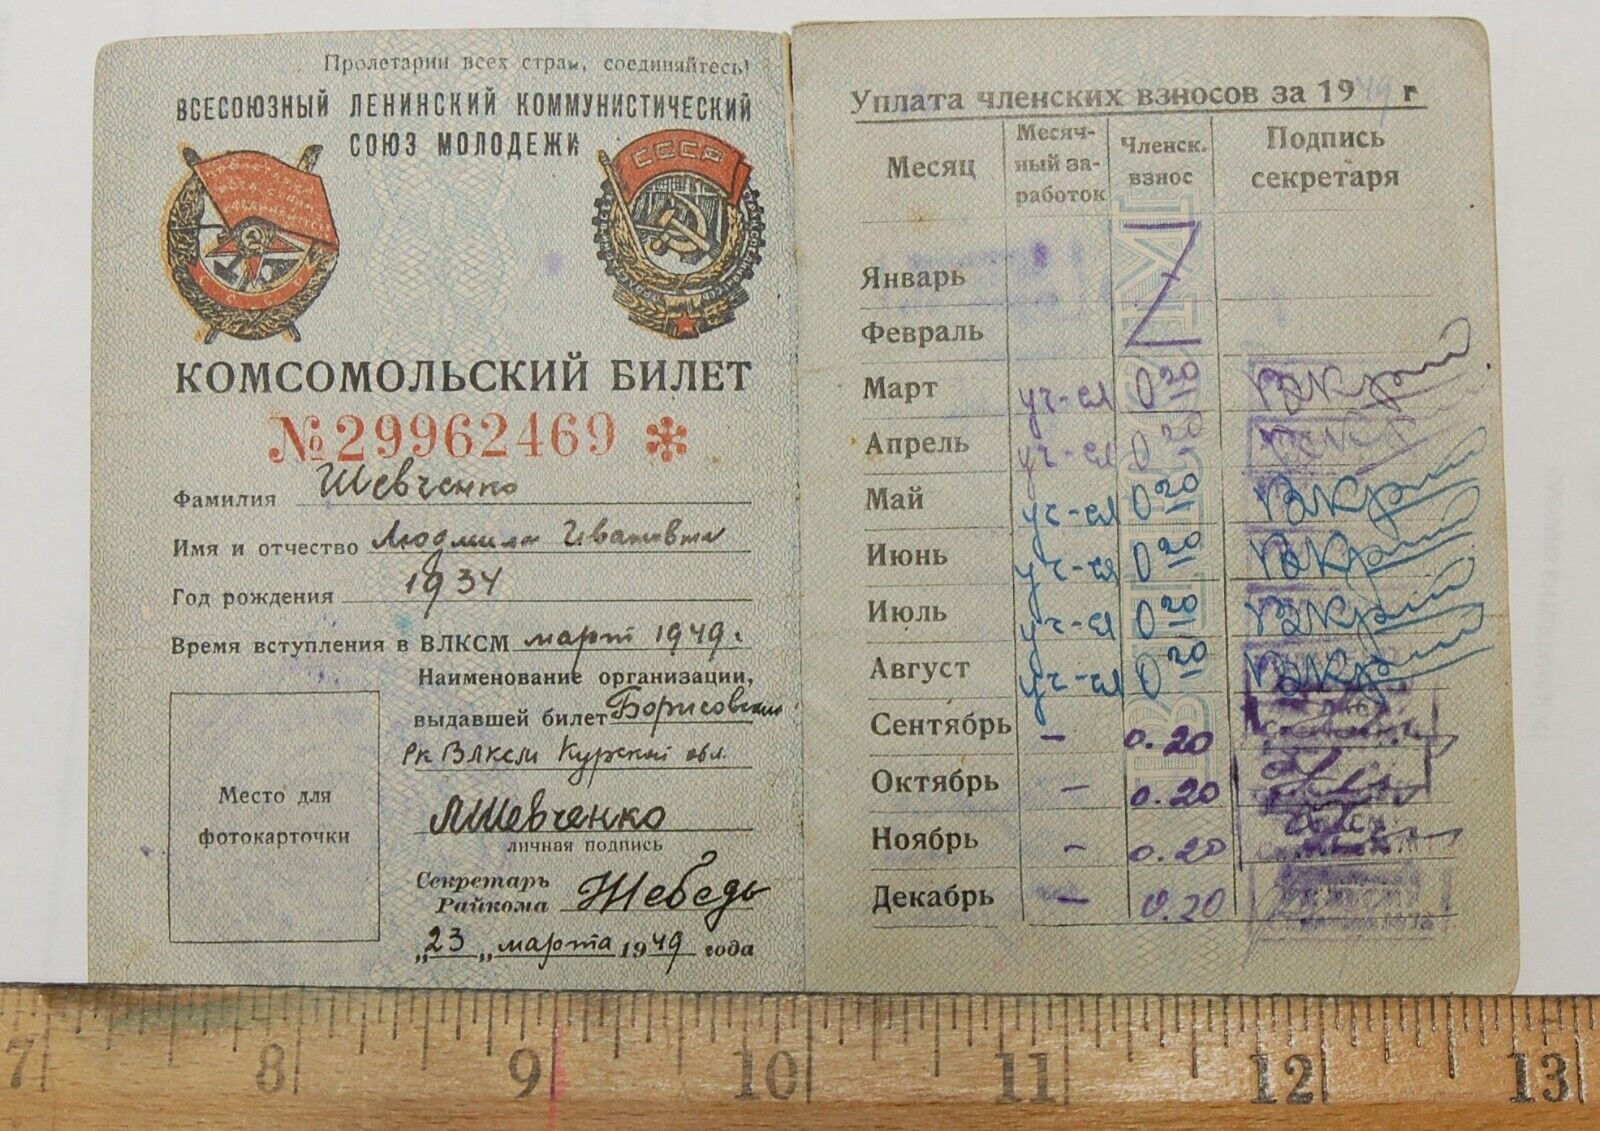 Пролетарии всех стран, соединяйтесь!
ВСЕСОЮЗНЫЙ ЛЕНИНСКИЙ КОММУНИСТИЧЕСКИЙ
СОЮЗ МОЛОДЕЖИ
СССР
КОМСОМОЛЬСКИЙ БИЛЕТ
№29962469 *
Фамилия Шевченко
Имя и отчество Людмила Ивановна
Год рождения 1934
Время вступления в ВЛКСМ март 1949 г.
Наименование организации,
выдавшей билет Борисовским
Рк ВЛКСМ Курской обл.
Место для
фотокарточки
ЛШевченко
личная подпись
Секретарь
Райкома Шебедь
„23„ марта 1949 года
Уплата членских взносов за 1949 г
Месяц Месяч-ный за-работок Членск. взнос Подпись секретаря
Январь
Февраль
Март уч-ся 0 20
Апрель уч-ся 0 20
Май уч-ся 0 20
Июнь уч-ся 0 20
Июль уч-ся 0 20
Август уч-ся 0 20
Сентябрь - 0.20
Октябрь - 0.20
Ноябрь - 0.20
Декабрь - 0.20
ВЛКСМ
7 8 9 10 11 12 13